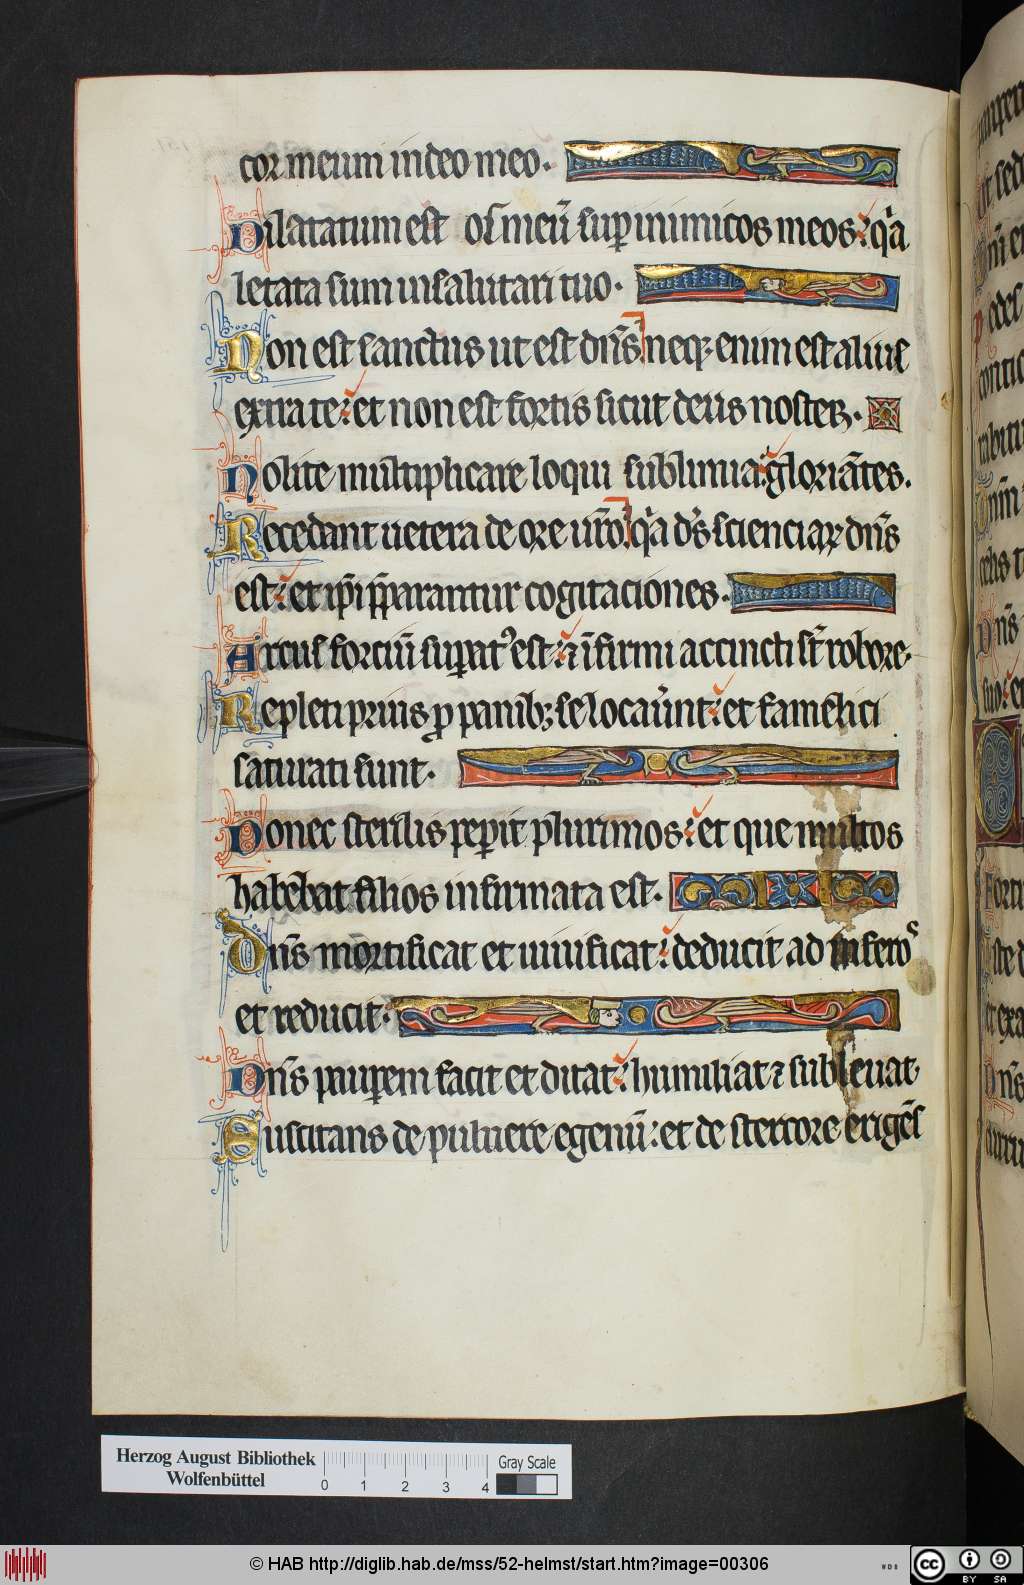 cor meum in deo meo·
Dilatatum est os meū sup inimicos meos: q̄a
letata sum in salutari tuo·
Non est sanctus ut est dn̄s neq; enim est alius
extra te: et non est fortis sicut deus noster·
Nolite multiplicare loqui sublimia: gloriātes.
Recedant uetera de ore ur̄o q̄a d̄s scienciaꝝ dn̄s
est: et ip̄i p̄parantur cogitaciones·
Arcus forciū supatꝰ est: ⁊ īfirmi accincti st̄ robore·
Repleti prius ꝓ panibꝫ se locaūnt: et famelici
saturati sunt·
Donec sterilis peperit plurimos: et que multos
habebat filios infirmata est·
Dn̄s mortificat et uiuificat: deducit ad inferoˢ
et reducit·
Dn̄s paupem facit et ditat: humiliat ⁊ subleuat·
Suscitans de puluere egenū: et de stercore erigēs
Herzog August Bibliothek
Wolfenbüttel
0 1 2 3 4
Gray Scale
© HAB http://diglib.hab.de/mss/52-helmst/start.htm?image=00306
WDB
cc BY SA